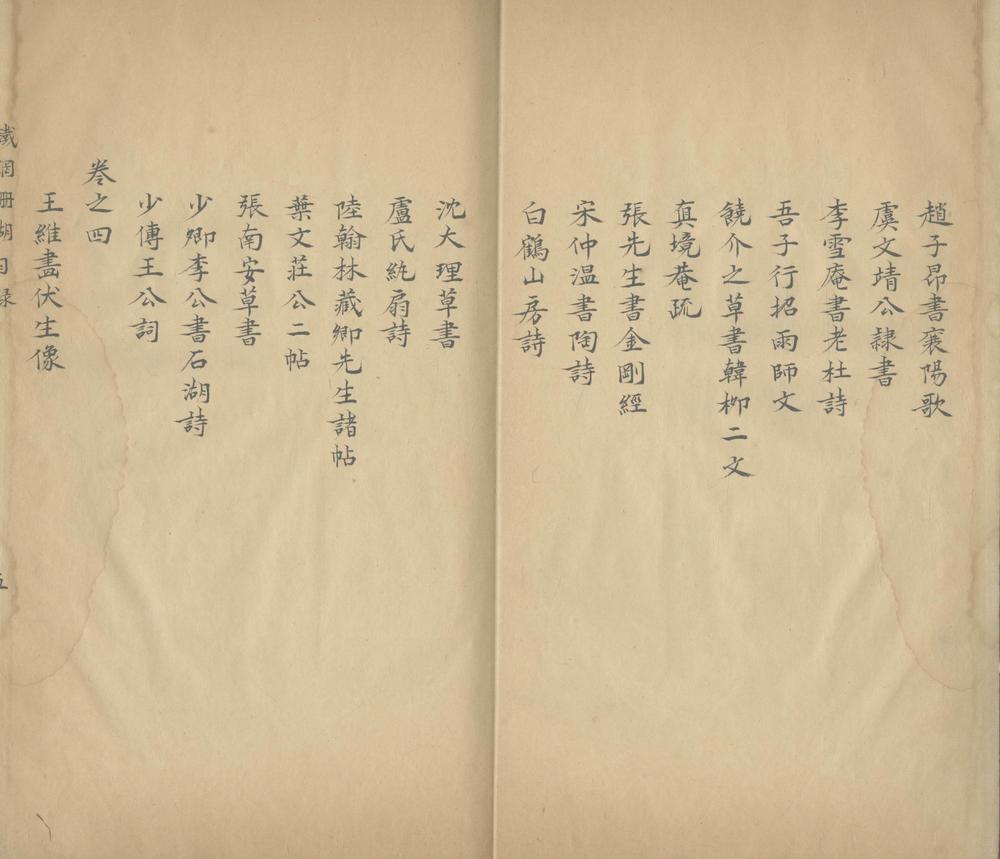 趙子昂書襄陽歌
虞文靖公隸書
李雪庵書老杜詩
吾子行招雨師文
饒介之草書韓柳二文
真境菴疏
張先生書金剛經
宋仲温書陶詩
白鶴山房詩
沈大理草書
盧氏紈扇詩
陸翰林藏卿先生諸帖
葉文莊公二帖
張南安草書
少卿李公書石湖詩
少傅王公詞
卷之四
王維畫伏生像
鐵網珊瑚目録
五